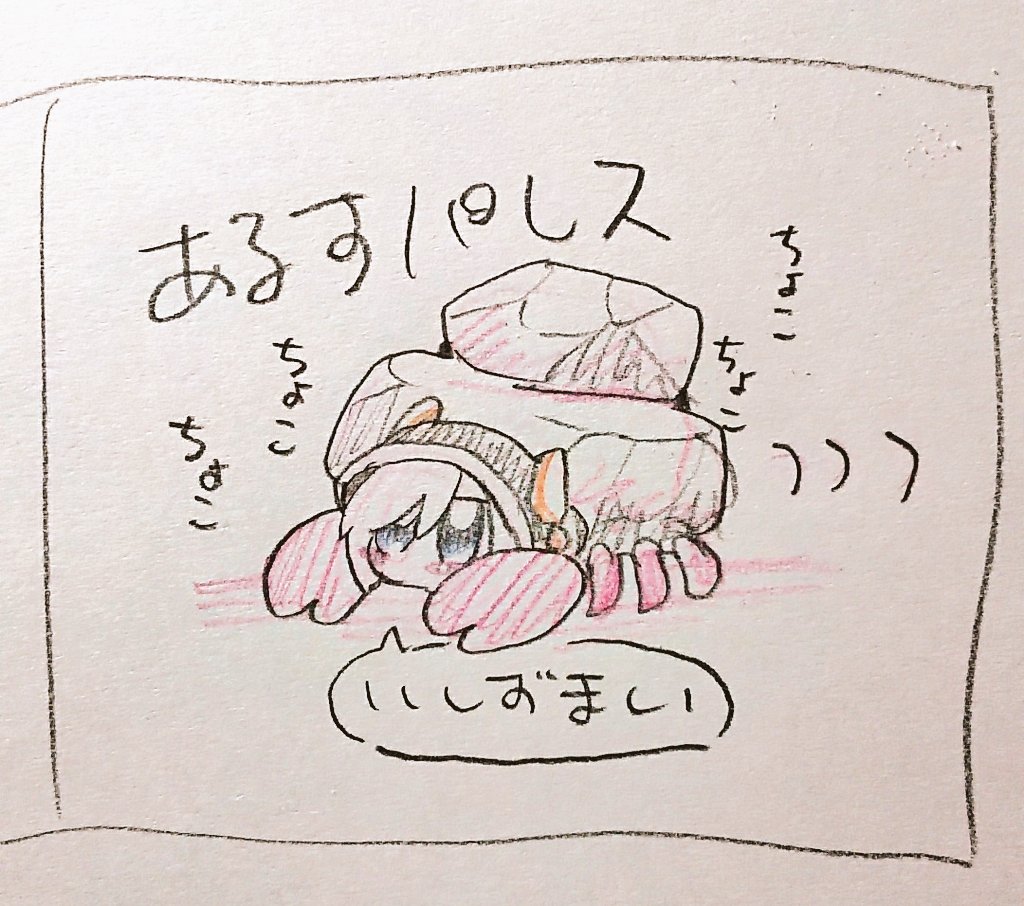 あるすパレス
ちょこ
ちょこ
ちょこ
ちょこ
いしずまい